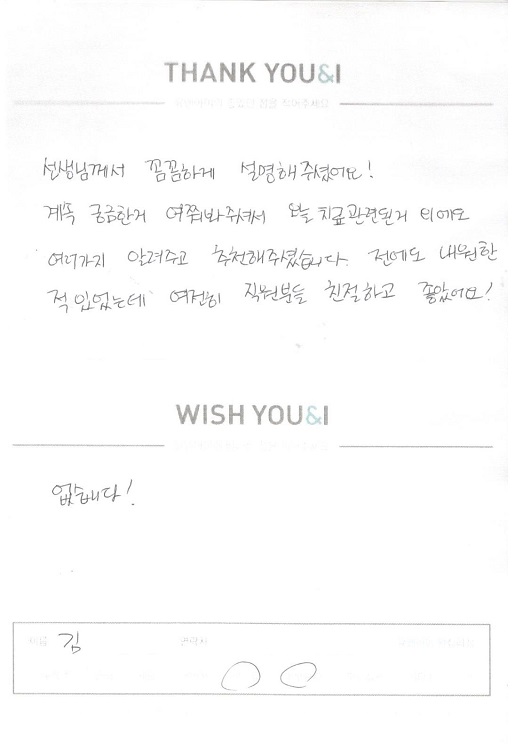 THANK YOU&I
선생님께서 꼼꼼하게 설명해주셨어요!
계속 궁금한거 여쭤봐주셔서 오늘 치료관련된거 이외에도
여러가지 알려주고 추천해주셨습니다. 전에도 내원한
적 있었는데 여전히 직원분들 친절하고 좋았어요!
WISH YOU&I
없습니다!
이름 김 연락처